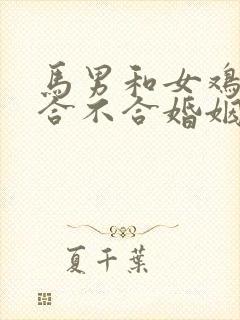 馬男和女鸡
合不合婚姻
夏千葉